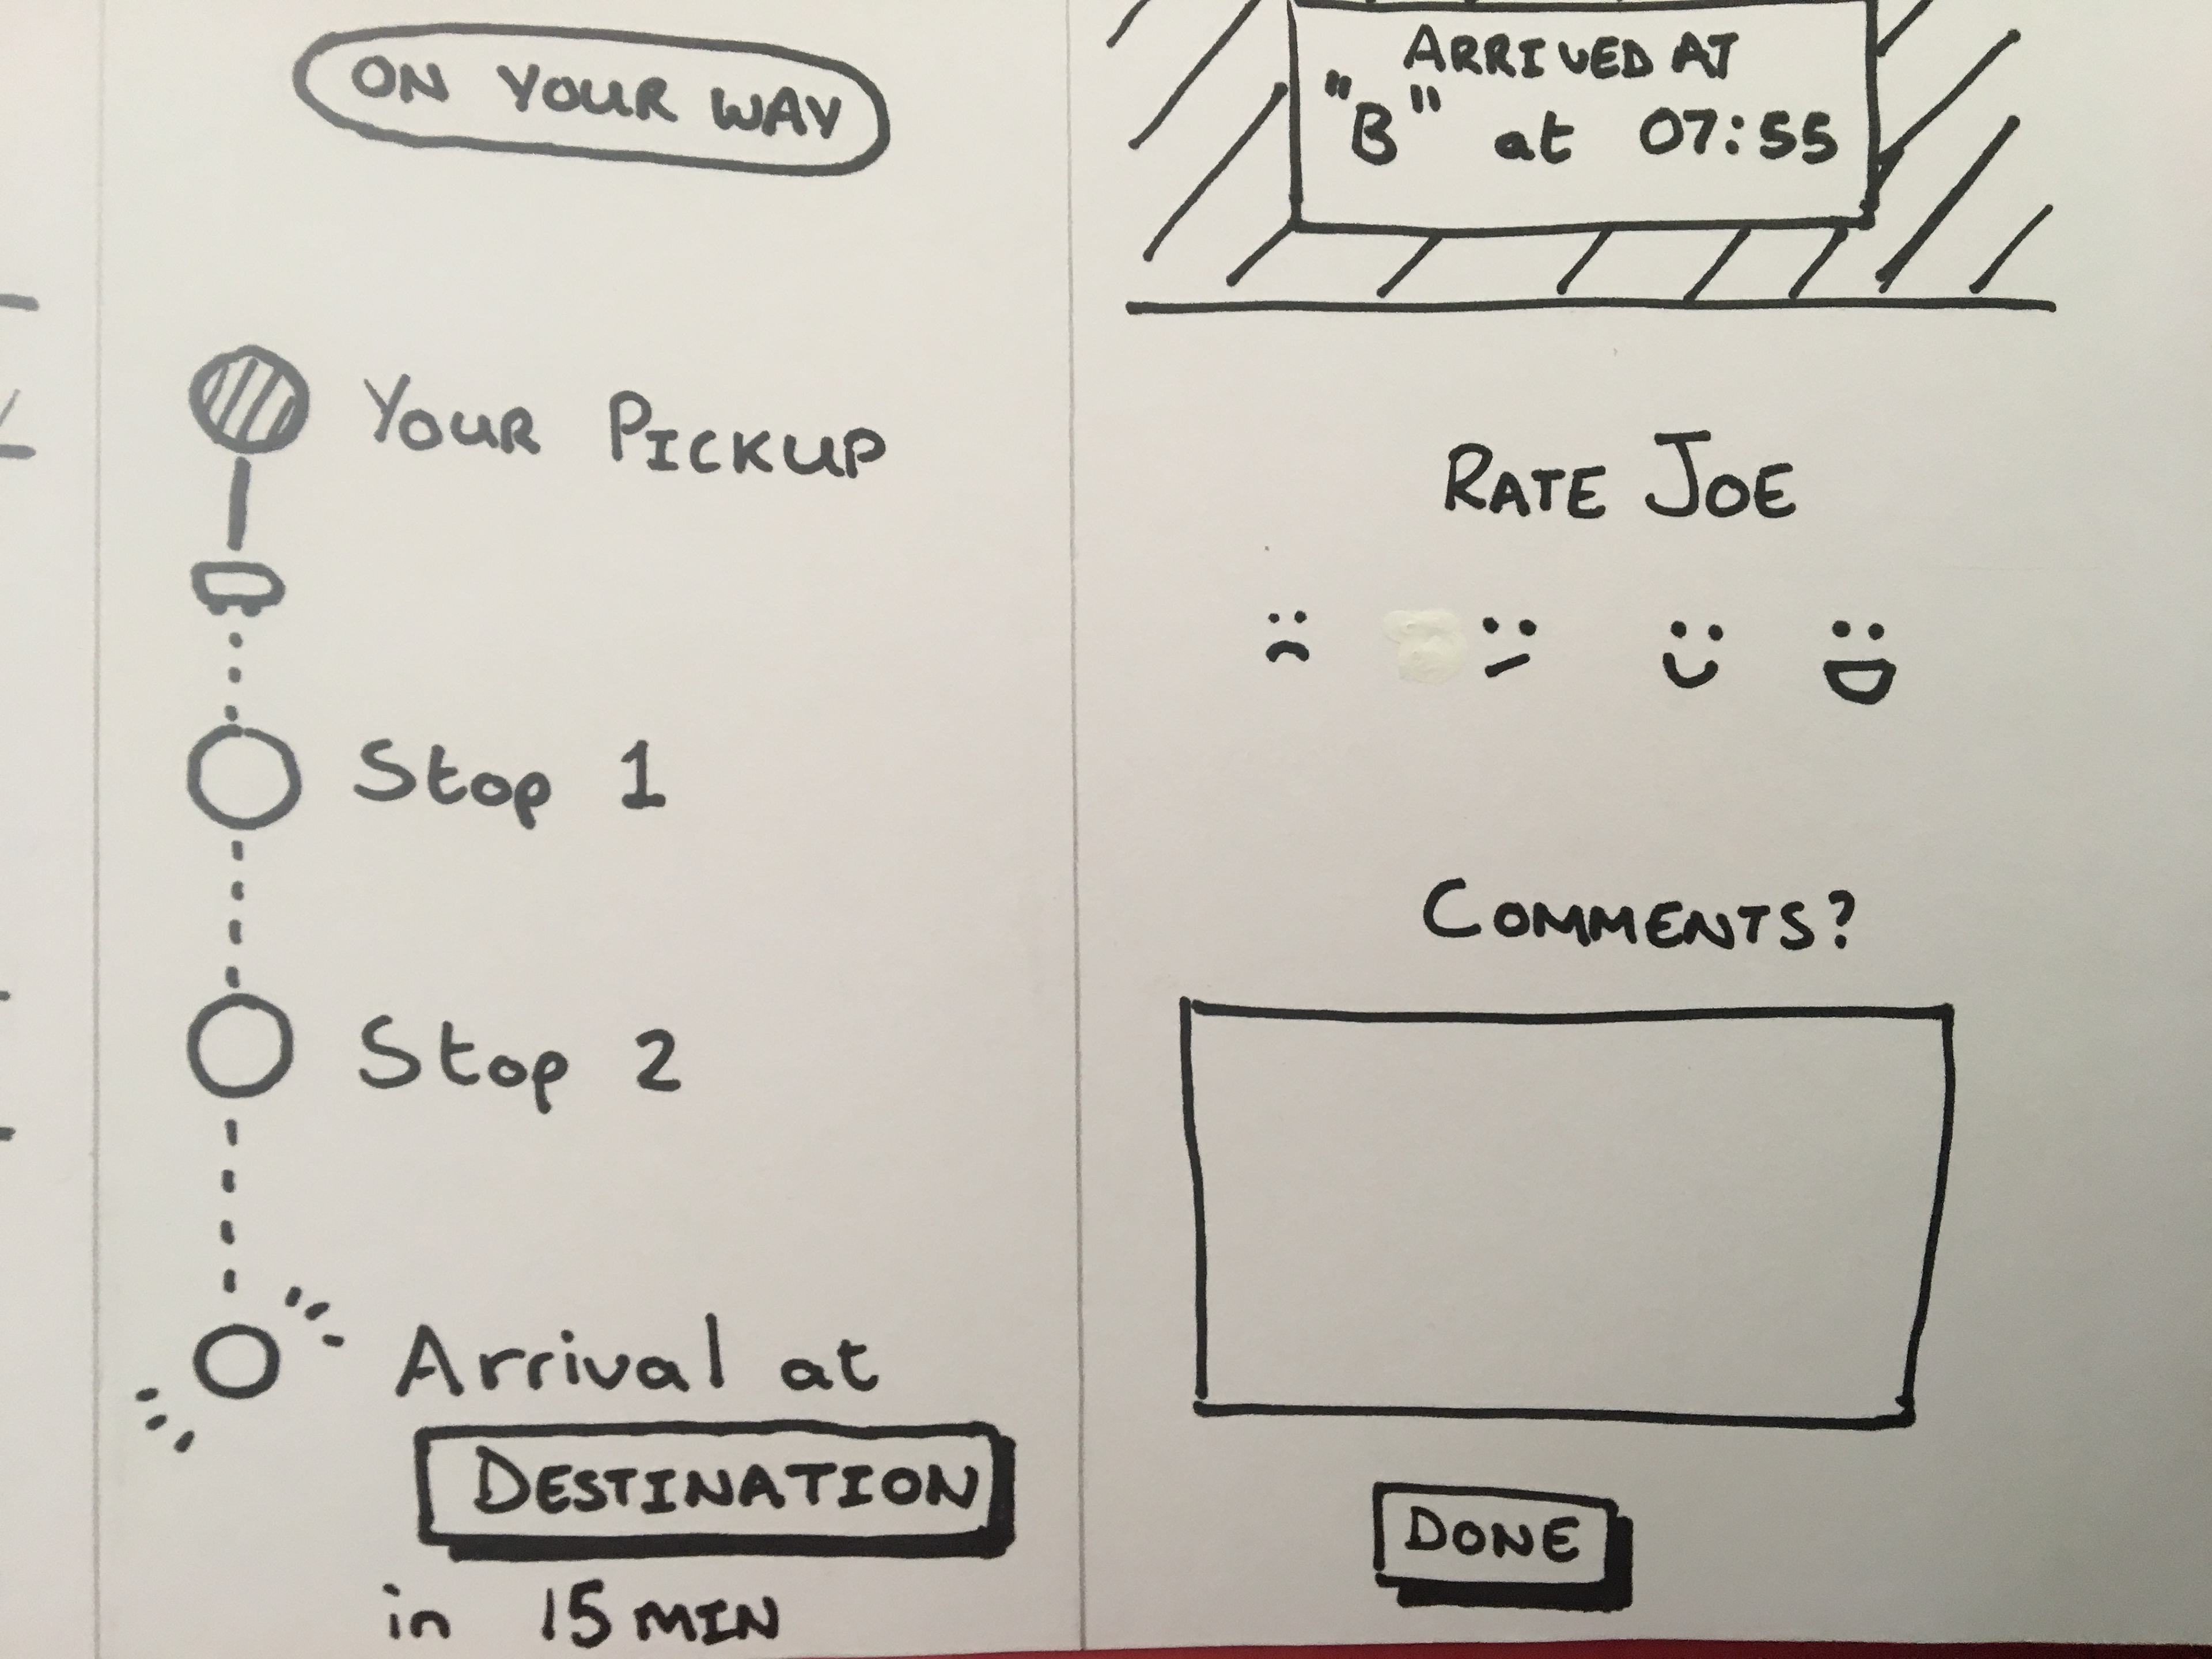 ON YOUR WAY
YOUR PICKUP
Stop 1
Stop 2
Arrival at
DESTINATION
in 15 MIN
ARRIVED AT
"B" at 07:55
RATE JOE
COMMENTS?
DONE